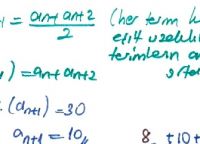 = aₙ+aₙ+2 / 2
(her term k
eşit uzaklı
terimlerin a
) = aₙ+aₙ+2
(aₙ+1) = 30
aₙ+1 = 10
8 +10+